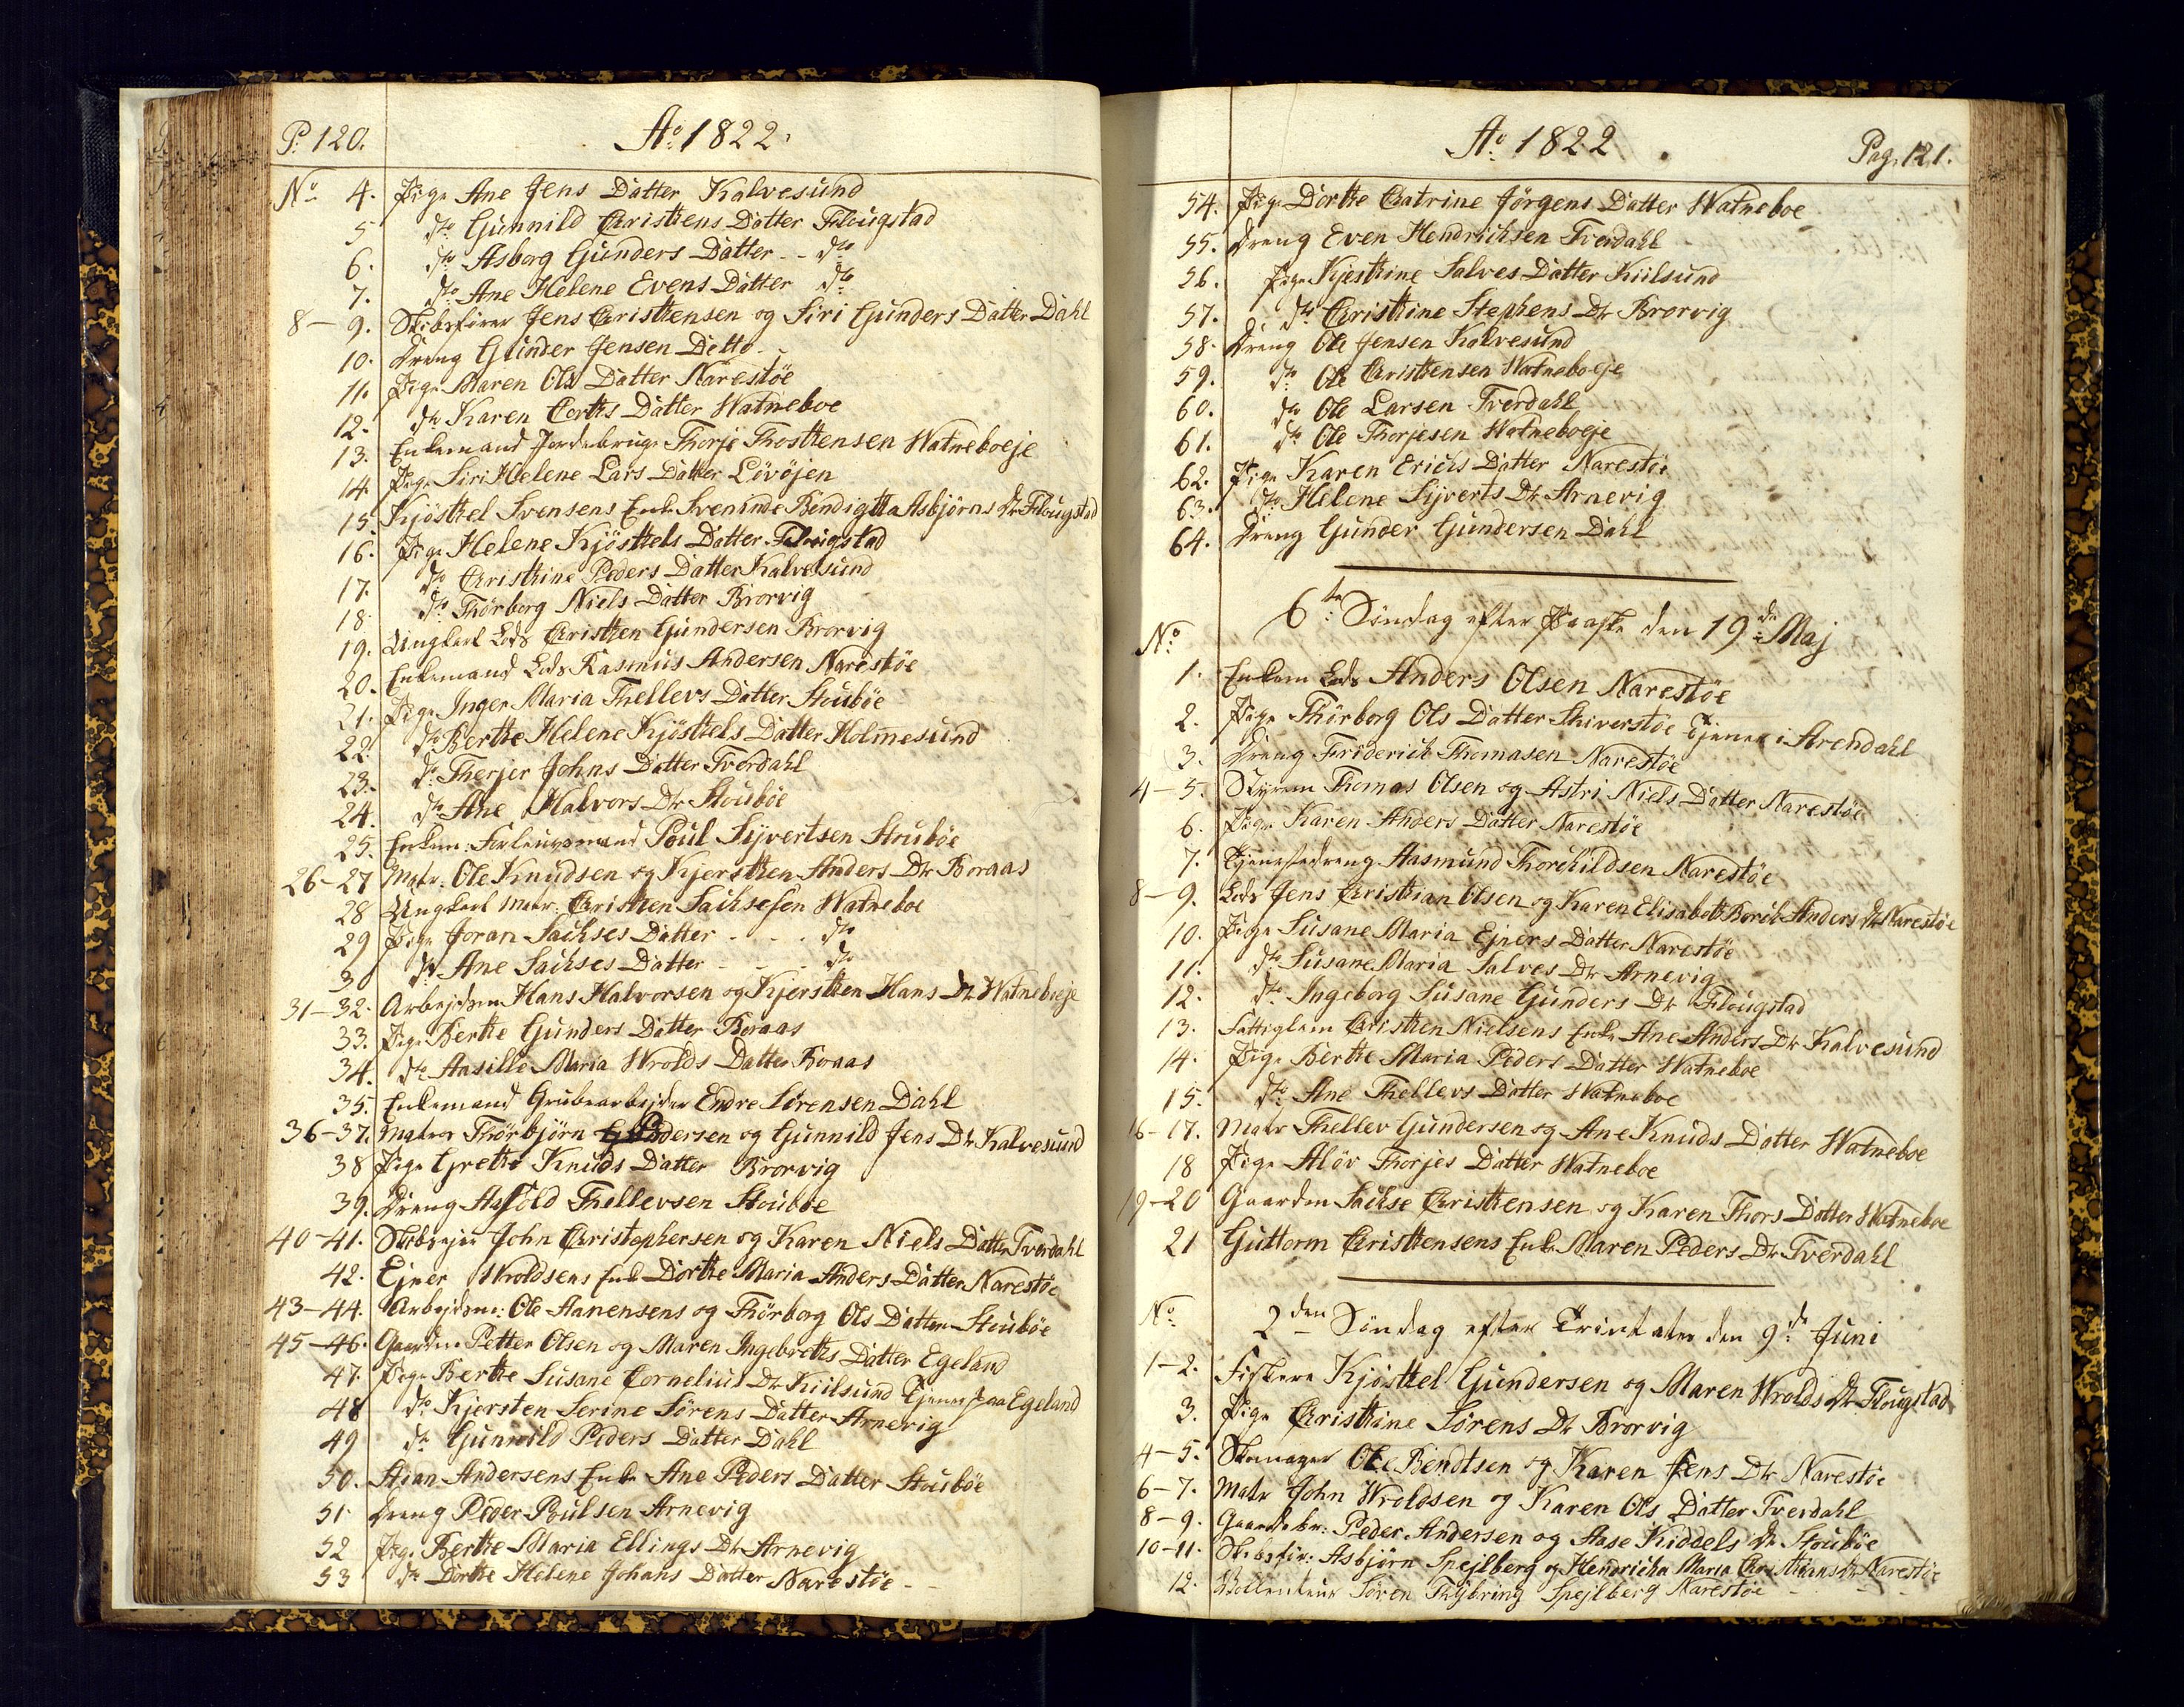 P. 120.
Ao: 1822.
No. 4. Pige Ane Jens Datter Kalvesund
5 do Gunnild Christens Datter Flougstad
6. do Asborg Gunders Datter - - do
7. do Ane Helene Evens Datter do
8 - 9. Skibsfører Jens Christensen og Siri Gunders Datter Dahl
10. Dreng Gunder Jensen Detto
11. Pige Maren Ols Datter Narestøe
12. do Karen Corths Datter Watneboe
13. Enkemand Jordebruger Thorje Thostensen Watneboeje
14. Pige Siri Helene Lars Datter Lövöjen
15. Kjöstel Svensens Enke Sveninde Bendigtta Asbjörns Dr Flougstad
16. Pige Helene Kjöstels Datter Flougstad
17. do Christine Peders Datter Kalvesund
18. do Thörborg Niels Datter Brorvig
19. Ungkarl Lods Christen Gundersen Brorvig
20. Enkemand Lods Rasmus Andersen Narestøe
21. Pige Inger Maria Thellevs Datter Stouböe
22. do Berthe Helene Kjöstels Datter Holmesund
23. do Therjer Johns Datter Tverdahl
24. do Ane Halvors Dr Stouböe
25. Enkem: Poul Syvertsen Stouböe
26-27 Matr: Ole Knudsen og Kjersten Anders Dr Boraas
28 Ungkarl Matr: Christen Sachsesen Watneboe
29 Pige Joran Sachses Datter - - - do
30 do Ane Sachses Datter - - - do
31-32. Arbejdsm Hans Halvorsen og Kjersten Hans Dr Watneboeje
33. Pige Berthe Gunders Datter Boraas
34. do Aasille Maria Wrolds Datter Boraas
35. Enkemand Grubearbejder Endre Sörensen Dahl
36-37. Matros Thörbjörn Pedersen og Gunnild Jens Dr Kalvesund
38 Pige Grethe Knuds Datter Brorvig
39. Dreng Asfold Thellevsen Stouböe
40-41. Skibsejer John Christophersen og Karen Niels Datter Tverdahl
42. Ejner Wroldsens Enke Dorthe Maria Anders Datter Narestøe
43-44. Arbejdsm: Ole Aanensens og Thörborg Ols Datter Stouböe
45-46. Gaardm Petter Olsen og Maren Ingebreths Datter Egeland
47. Pige Berthe Susane Cornelius Dr Kiilsund Tjener paa Egeland
48 do Kjersten Serine Sörens Datter Arnevig
49 do Gunnild Peders Datter Dahl
50. Stian Andersens Enke Ane Peders Datter Stouböe
51 Dreng Peder Poulsen Arnevig
52 Pige Berthe Maria Ellings Dr Arnevig
53 do Dorthe Helene Johans Datter Narestøe -
Ao: 1822
Pag. 121.
54. Pige Dorthe Catrine Jörgens Datter Watneboe
55. Dreng Even Hendrichsen Tverdahl
56. Pige Kjestine Salves Datter Kiilsund
57. do Christine Stephens Dr Brorvig
58. Dreng Ole Jensen Kalvesund
59. do Ole Christensen Watneboeje
60. do Ole Larsen Tverdahl
61. do Ole Thorjesen Watneboeje
62. Pige Karen Erichs Datter Narestøe
63. do Helene Syverts Dr Arnevig
64. Dreng Gunder Gundersen Dahl
6te Söndag efter Paaske den 19de Maj
No
1. Enkem Lods Anders Olsen Narestøe
2. Pige Thörborg Ols Datter Skiverstøe Tjener i Arendahl
3. Dreng Friderich Thomasen Narestøe
4-5. Thomas Olsen og Astri Niels Datter Narestøe
6. Pige Karen Anders Datter Narestøe
7. Tjenestedreng Aasmund Thorchildsen Narestøe
8-9. Lods Jens Christian Olsen og Karen Elisabeth Anders Dr Narestøe
10. Pige Susane Maria Ejners Datter Narestøe
11. do Susane Maria Salves Dr Arnevig
12. do Ingeborg Susane Gunders Dr Flougstad
13. Fattiglem Christen Nielsens Enke Ane Anders Dr Kalvesund
14. Pige Berthe Maria Peders Datter Watneboe
15. do Ane Thellevs Datter Watneboe
16-17. Matr Thellev Gundersen og Ane Knuds Datter Watneboe
18 Pige Alöv Thorjes Datter Watneboe
19-20 Gaardm Sachse Christensen og Karen Thors Datter Watneboe
21 Guttorm Christensens Enke Maren Peders Dr Tverdahl
No
2den Söndag efter Trinitatis den 9de Juni
1-2. Fisker Kjöstel Gundersen og Maren Wrolds Dr Flougstad
3. Pige Christine Sörens Dr Brorvig
4-5. Skomager Ole Bendtsen og Karen Jens Dr Narestøe
6-7. Matr John Wroldsen og Karen Ols Datter Tverdahl
8-9. Gaardebr: Peder Andersen og Aase Kiddels Dr Stouböe
10-11. Skibsför: Asbjörn Spejlberg og Hendricha Maria Christians Dr Narestøe
12. Sören Thybring Spejlberg Narestøe - - -